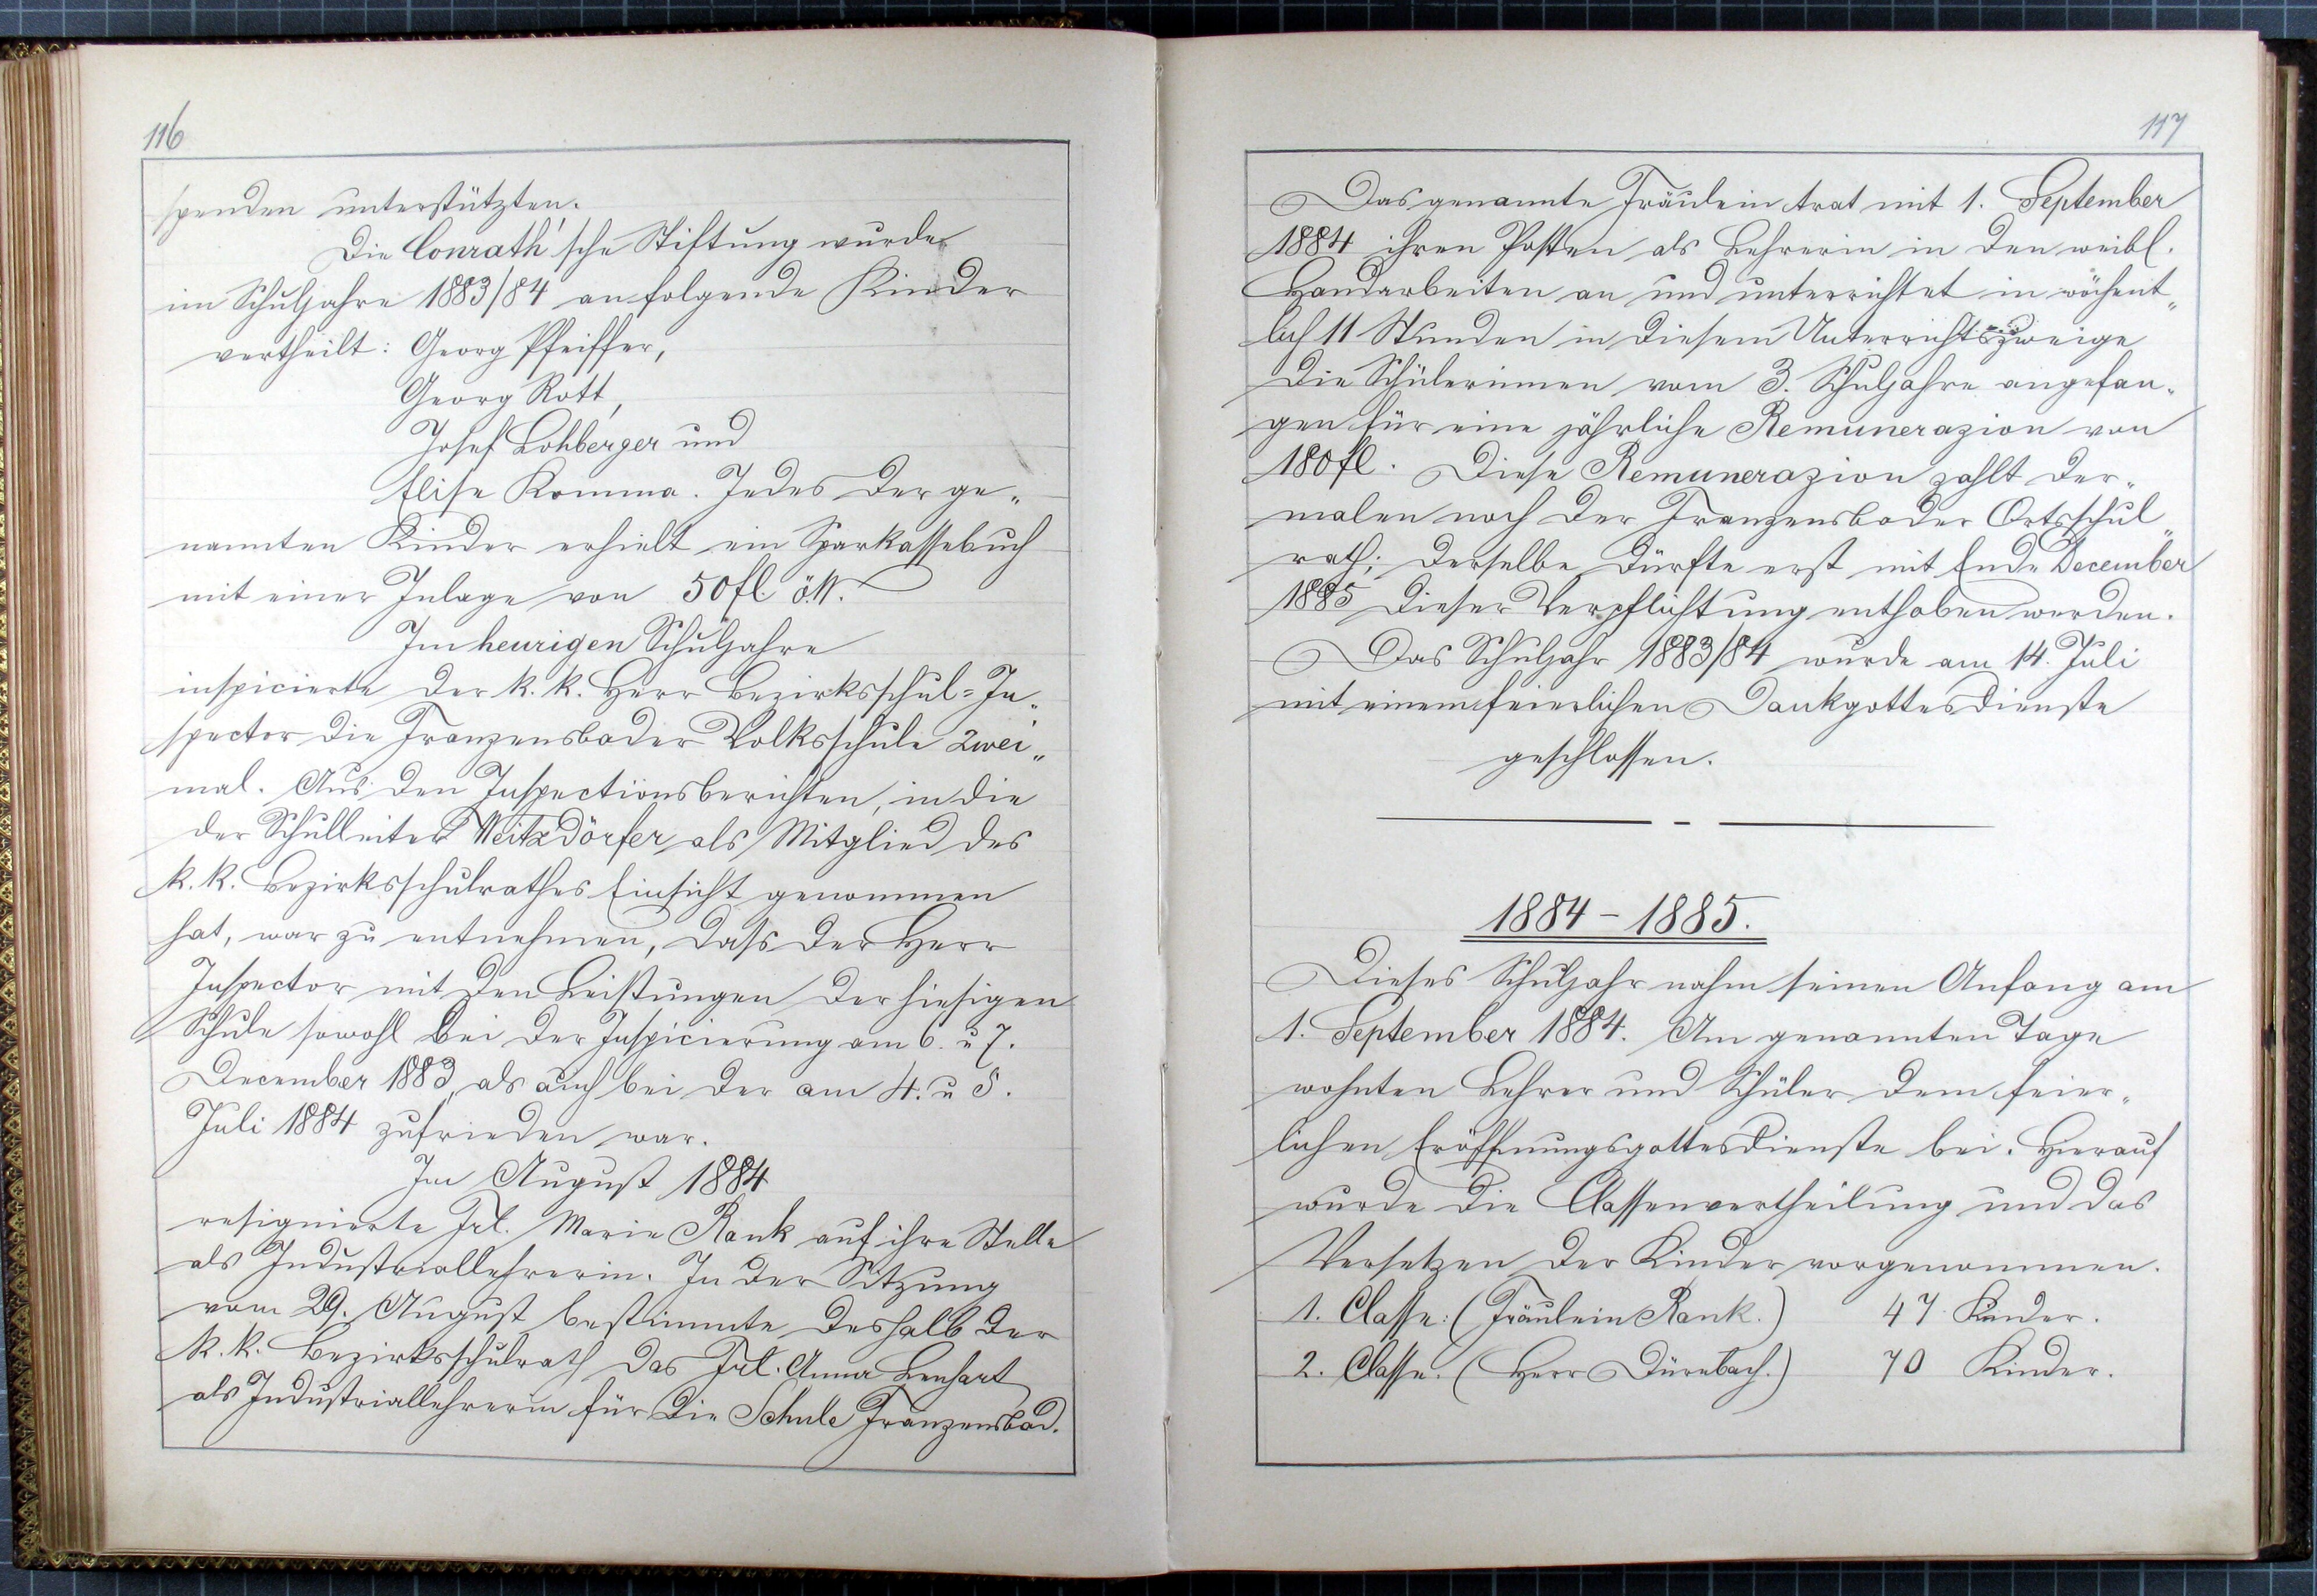 116
spenden unterstützten.
Die Conrath'sche Stiftung wurde
im Schuljahre 1883/84 an folgende Kinder
vertheilt: Georg Pfeiffer,
Georg Rott,
Josef Lohberger und
Elise Komma. Jedes der ge„
nannten Kinder erhielt ein Sparkassebuch
mit einer Inlage von 50 fl. ö.W.
Im heurigen Schuljahre
inspicierte der k. k. Herr Bezirksschul=In„
spector die Franzensbader Volksschule zwei„
mal. Aus den Inspectionsberichten, in die
der Schulleiter Weitzdörfer als Mitglied des
k. k. Bezirksschulrathes Einsicht genommen
hat, war zu entnehmen, dass der Herr
Inspector mit den Leistungen der hiesigen
Schule sowohl bei der Inspicierung am 6. u 7.
December 1883, als auch bei der am 4. u 5.
Juli 1884 zufrieden war.
Im August 1884
resignierte Frl. Marie Rank auf ihre Stelle
als Industriallehrerin. In der Sitzung
vom 29. August bestimmte deshalb der
k. k. Bezirksschulrath das Frl. Anna Lenhart
als Industriallehrerin für die Schule Franzensbad.
117
Das genannte Fräulein trat mit 1. September
1884 ihren Posten als Lehrerin in den weibl.
Handarbeiten an und unterrichtet in wöchent„
lich 11 Stunden in diesem Unterrichtszweige
die Schülerinnen vom 3. Schuljahre angefan„
gen für eine jährliche Remunerazion von
180 fl. Diese Remunerazion zahlt der„
malen noch der Franzensbader Ortsschul„
rath; derselbe dürfte erst mit Ende December
1885 dieser Verpflichtung enthoben werden.
Das Schuljahr 1883/84 wurde am 14. Juli
mit einem feierlichen Dankgottesdienste
geschlossen.
1884 – 1885.
Dieses Schuljahr nahm seinen Anfang am
1. September 1884. Am genannten Tage
wohnten Lehrer und Schüler dem feier„
lichen Eröffnungsgottesdienste bei. Hierauf
wurde die Classenvertheilung und das
Versetzen der Kinder vorgenommen.
1. Classe: (Fräulein Rank.) 47 Kinder.
2. Classe. (Herr Dürnbach.) 70 Kinder.